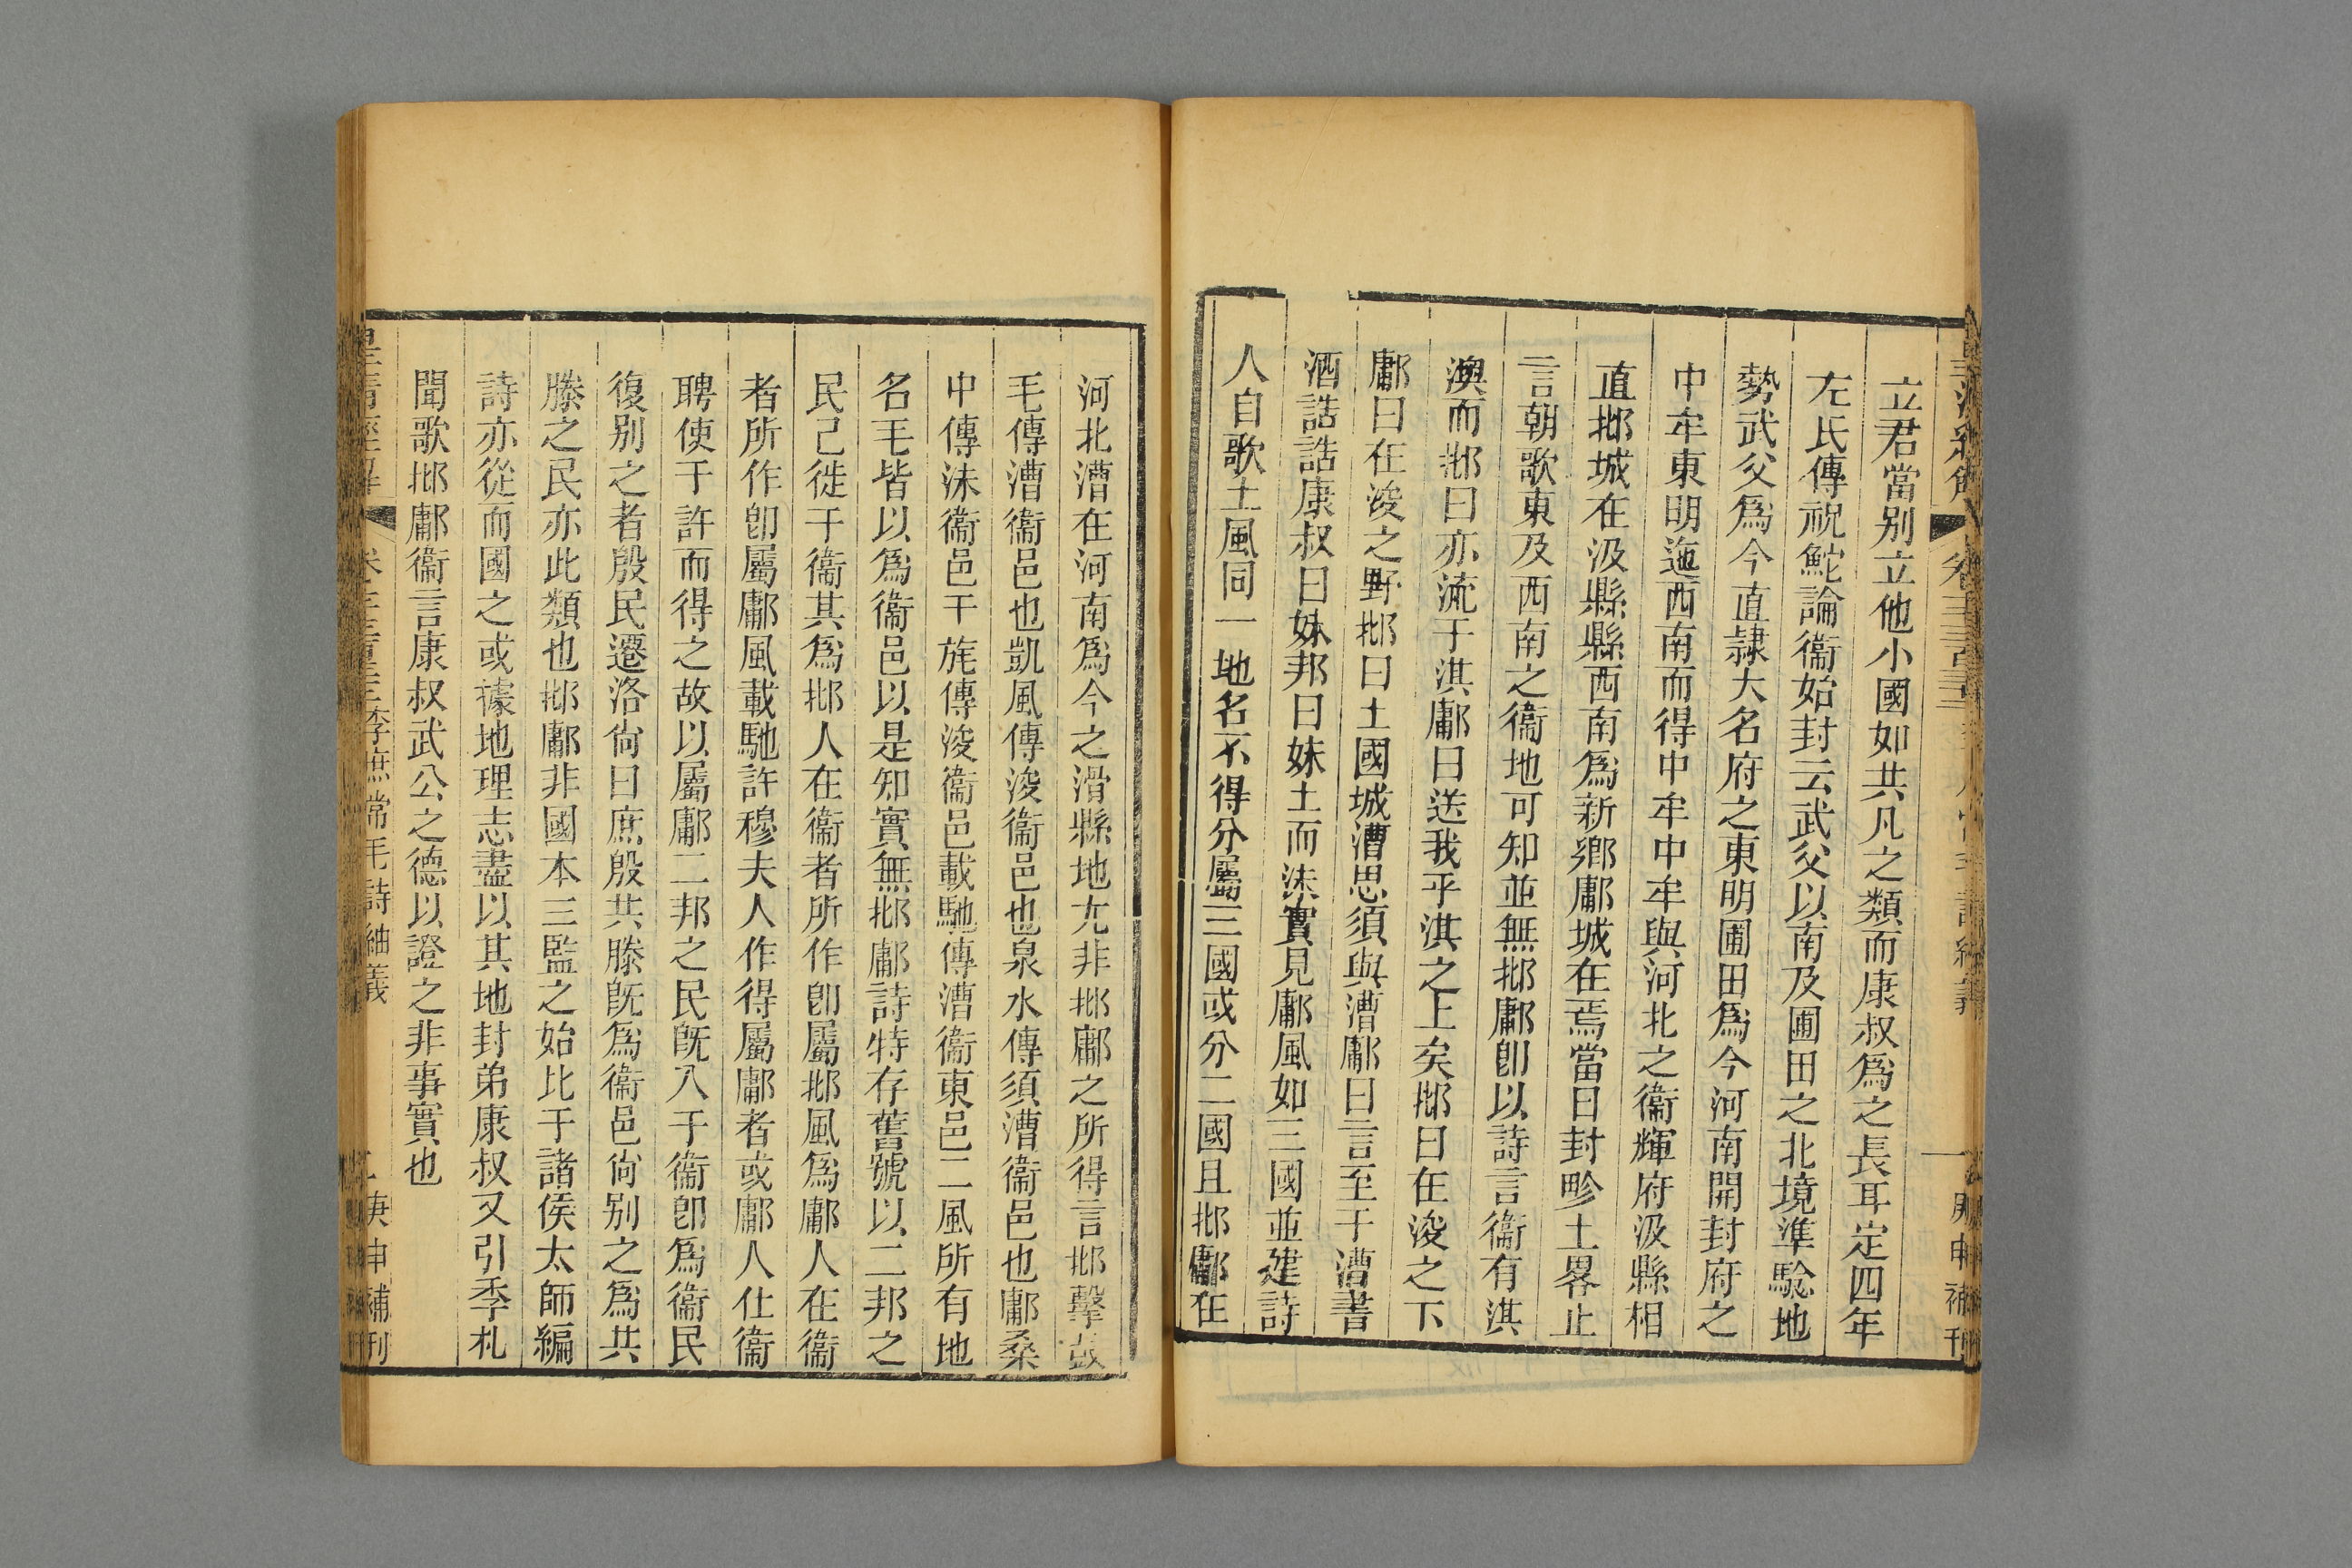 立君當别立他小國如共凡之類而康叔爲之長耳定四年
左氏傳祝鮀論衞始封云武父以南及圃田之北境準騐地
勢武父爲今直隸大名府之東明圃田爲今河南開封府之
中牟東明迤西南而得中牟中牟與河北之衞輝府汲縣相
直邶城在汲縣縣西南爲新鄉鄘城在焉當日封畛土畧止
言朝歌東及西南之衞地可知並無邶鄘卽以詩言衞有淇
澳而邶曰亦流于淇鄘曰送我乎淇之上矣邶曰在浚之下
鄘曰在浚之野邶曰土國城漕思須與漕鄘曰言至于漕書
酒誥誥康叔曰妹邦曰妹土而沬實見鄘風如三國並建詩
人自歌土風同一地名不得分屬三國或分二國且邶鄘在
河北漕在河南爲今之滑縣地尤非邶鄘之所得言邶擊鼓
毛傳漕衞邑也凱風傳浚衞邑也泉水傳須漕衞邑也鄘桑
中傳沬衞邑干旄傳浚衞邑載馳傳漕衞東邑二風所有地
名毛皆以爲衞邑以是知實無邶鄘詩特存舊號以二邦之
民已徙于衞其爲邶人在衞者所作卽屬邶風爲鄘人在衞
者所作卽屬鄘風載馳許穆夫人作得屬鄘者或鄘人仕衞
聘使于許而得之故以屬鄘二邦之民旣入于衞卽爲衞民
復别之者殷民遷洛尙曰庶殷共滕旣爲衞邑尙别之爲共
滕之民亦此類也邶鄘非國本三監之始比于諸侯太師編
詩亦從而國之或據地理志盡以其地封弟康叔又引季札
聞歌邶鄘衞言康叔武公之德以證之非事實也
皇清經解 李庶常毛詩紬義 庚申補刊